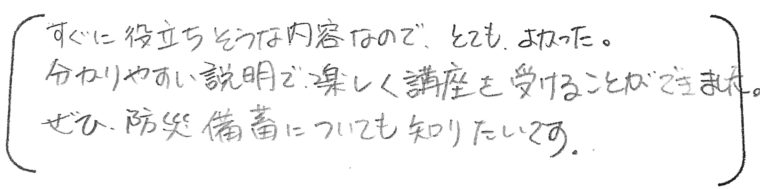 すぐに役立ちそうな内容なので、とても、よかった。
分かりやすい説明で、楽しく講座を受けることができました。
ぜひ、防災備蓄についても知りたいです。